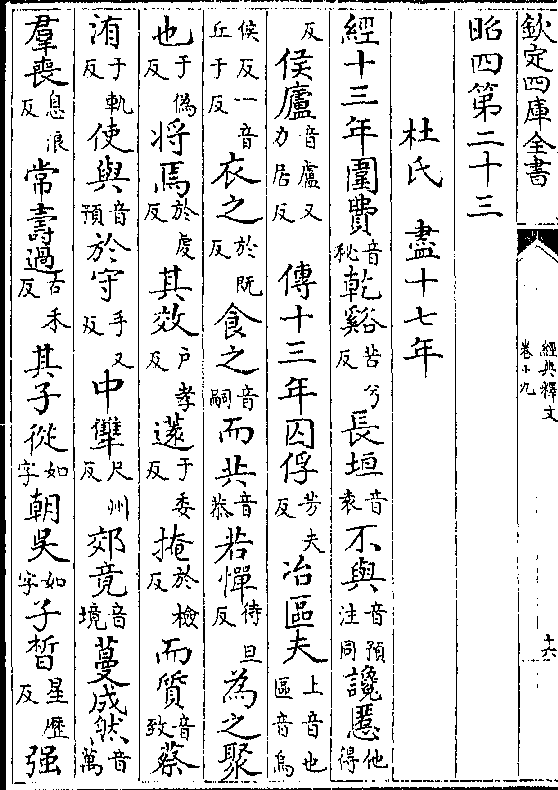 欽定四庫全書
經典釋文
卷十九
十六
昭四第二十三
杜氏 盡十七年
經十三年圍費音秘乾谿苦兮反長垣音袁不與音預注同讒慝他得
反侯廬音盧又力居反傳十三年囚俘芳夫反冶區夫上音也區音烏
侯反一音丘于反衣之於既反食之音嗣而共音恭若憚待旦反為之聚
也于偽反将焉於虔反其效户孝反薳于委反掩於檢反而質音致蔡
洧于軌反使與音預於守手又反中犫尺州反郊竟音境蔓成然音萬
羣喪息浪反常壽過古禾反其子從如字朝吳如字子晳星歷反强